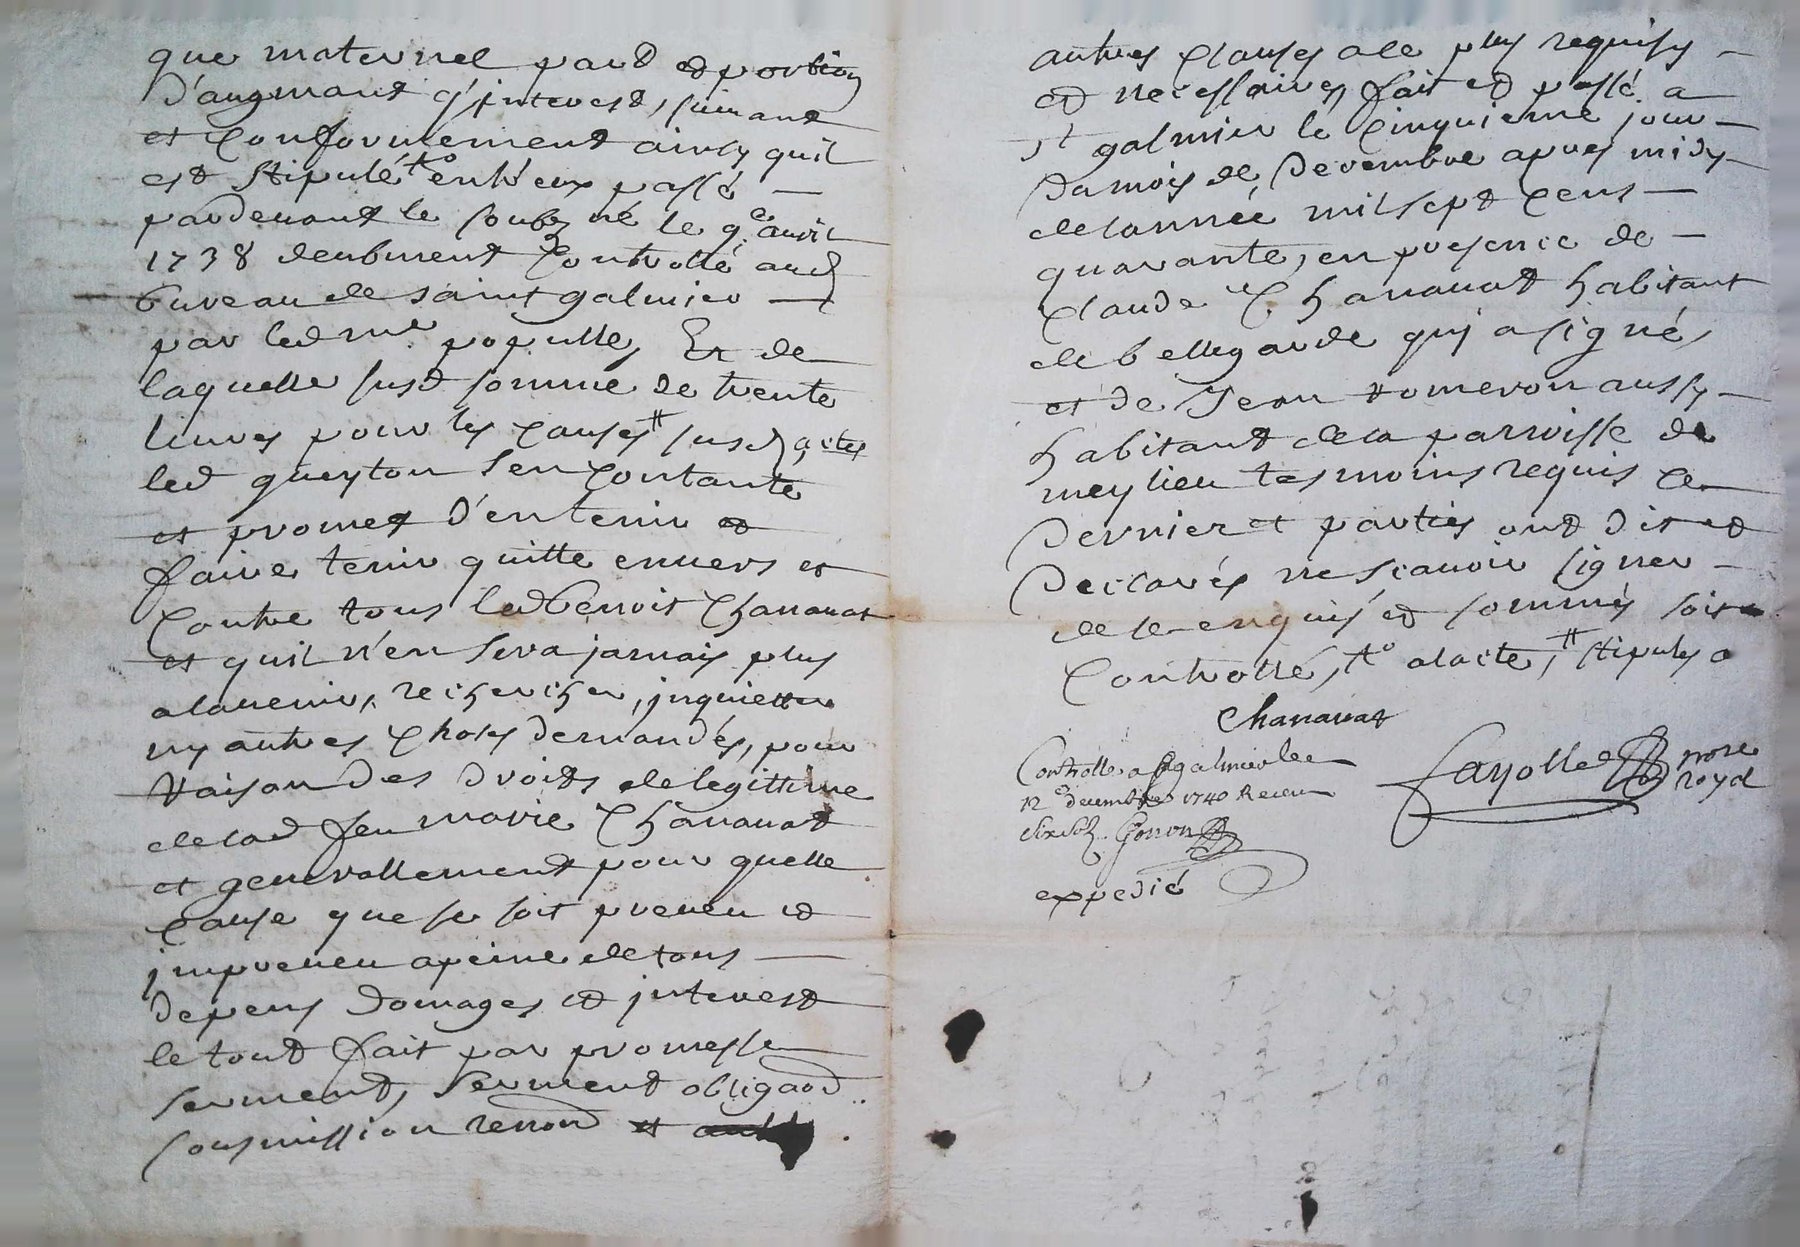 que maternel part et portion
d'augmant & jnterest, suivant
et Conformement ainsy quil
est stipulé to entre eux passé —
pardevant le soubz né le 9e auril
1738 deubment Controllé aud
bureau de saint galmier —
par led me populle, Et de
laquelle susd somme de trente
liures pour les causes # susd
led gueyton s'en Contante
et promet d'en tenir et
faire tenir quitte enuers et
Contre tous led benoit Chanauat
et quil n'en sera jamais plus
alauenir, recherche, jnquietter
ny autres choses demandés, pour
raison des droits de legittime
de lad feu marie Chanauat
et generallement pour quelle
cause que se soit preueu et
jmpreueu apeine de tous —
depens domages et jnterest
le tout fait par promesse
serment, serment obligaon
sousmission renon et
autres clauses a ce plus requises —
et necessaires, fait et passé a
st galmier le Cinquieme jour —
du mois de Decembre apres midy —
de lannée mil sept cens —
quarante, en presence de —
Claude Chanauat habitant
de bellegarde qui a signé,
et de Jean tomeron aussy —
habitant de la parroisse de
meylieu tesmoins requis ce
Dernier et parties ont dit et
Declarés ne scauoir signer —
de ce enquis et sommés soit
Controllé, to a lacte, # stipules a
Chanauat
Controllé a st galmier le —
12e decembre 1740 Receu
six solz. Gonon
Fayolle nore
royal
expedié